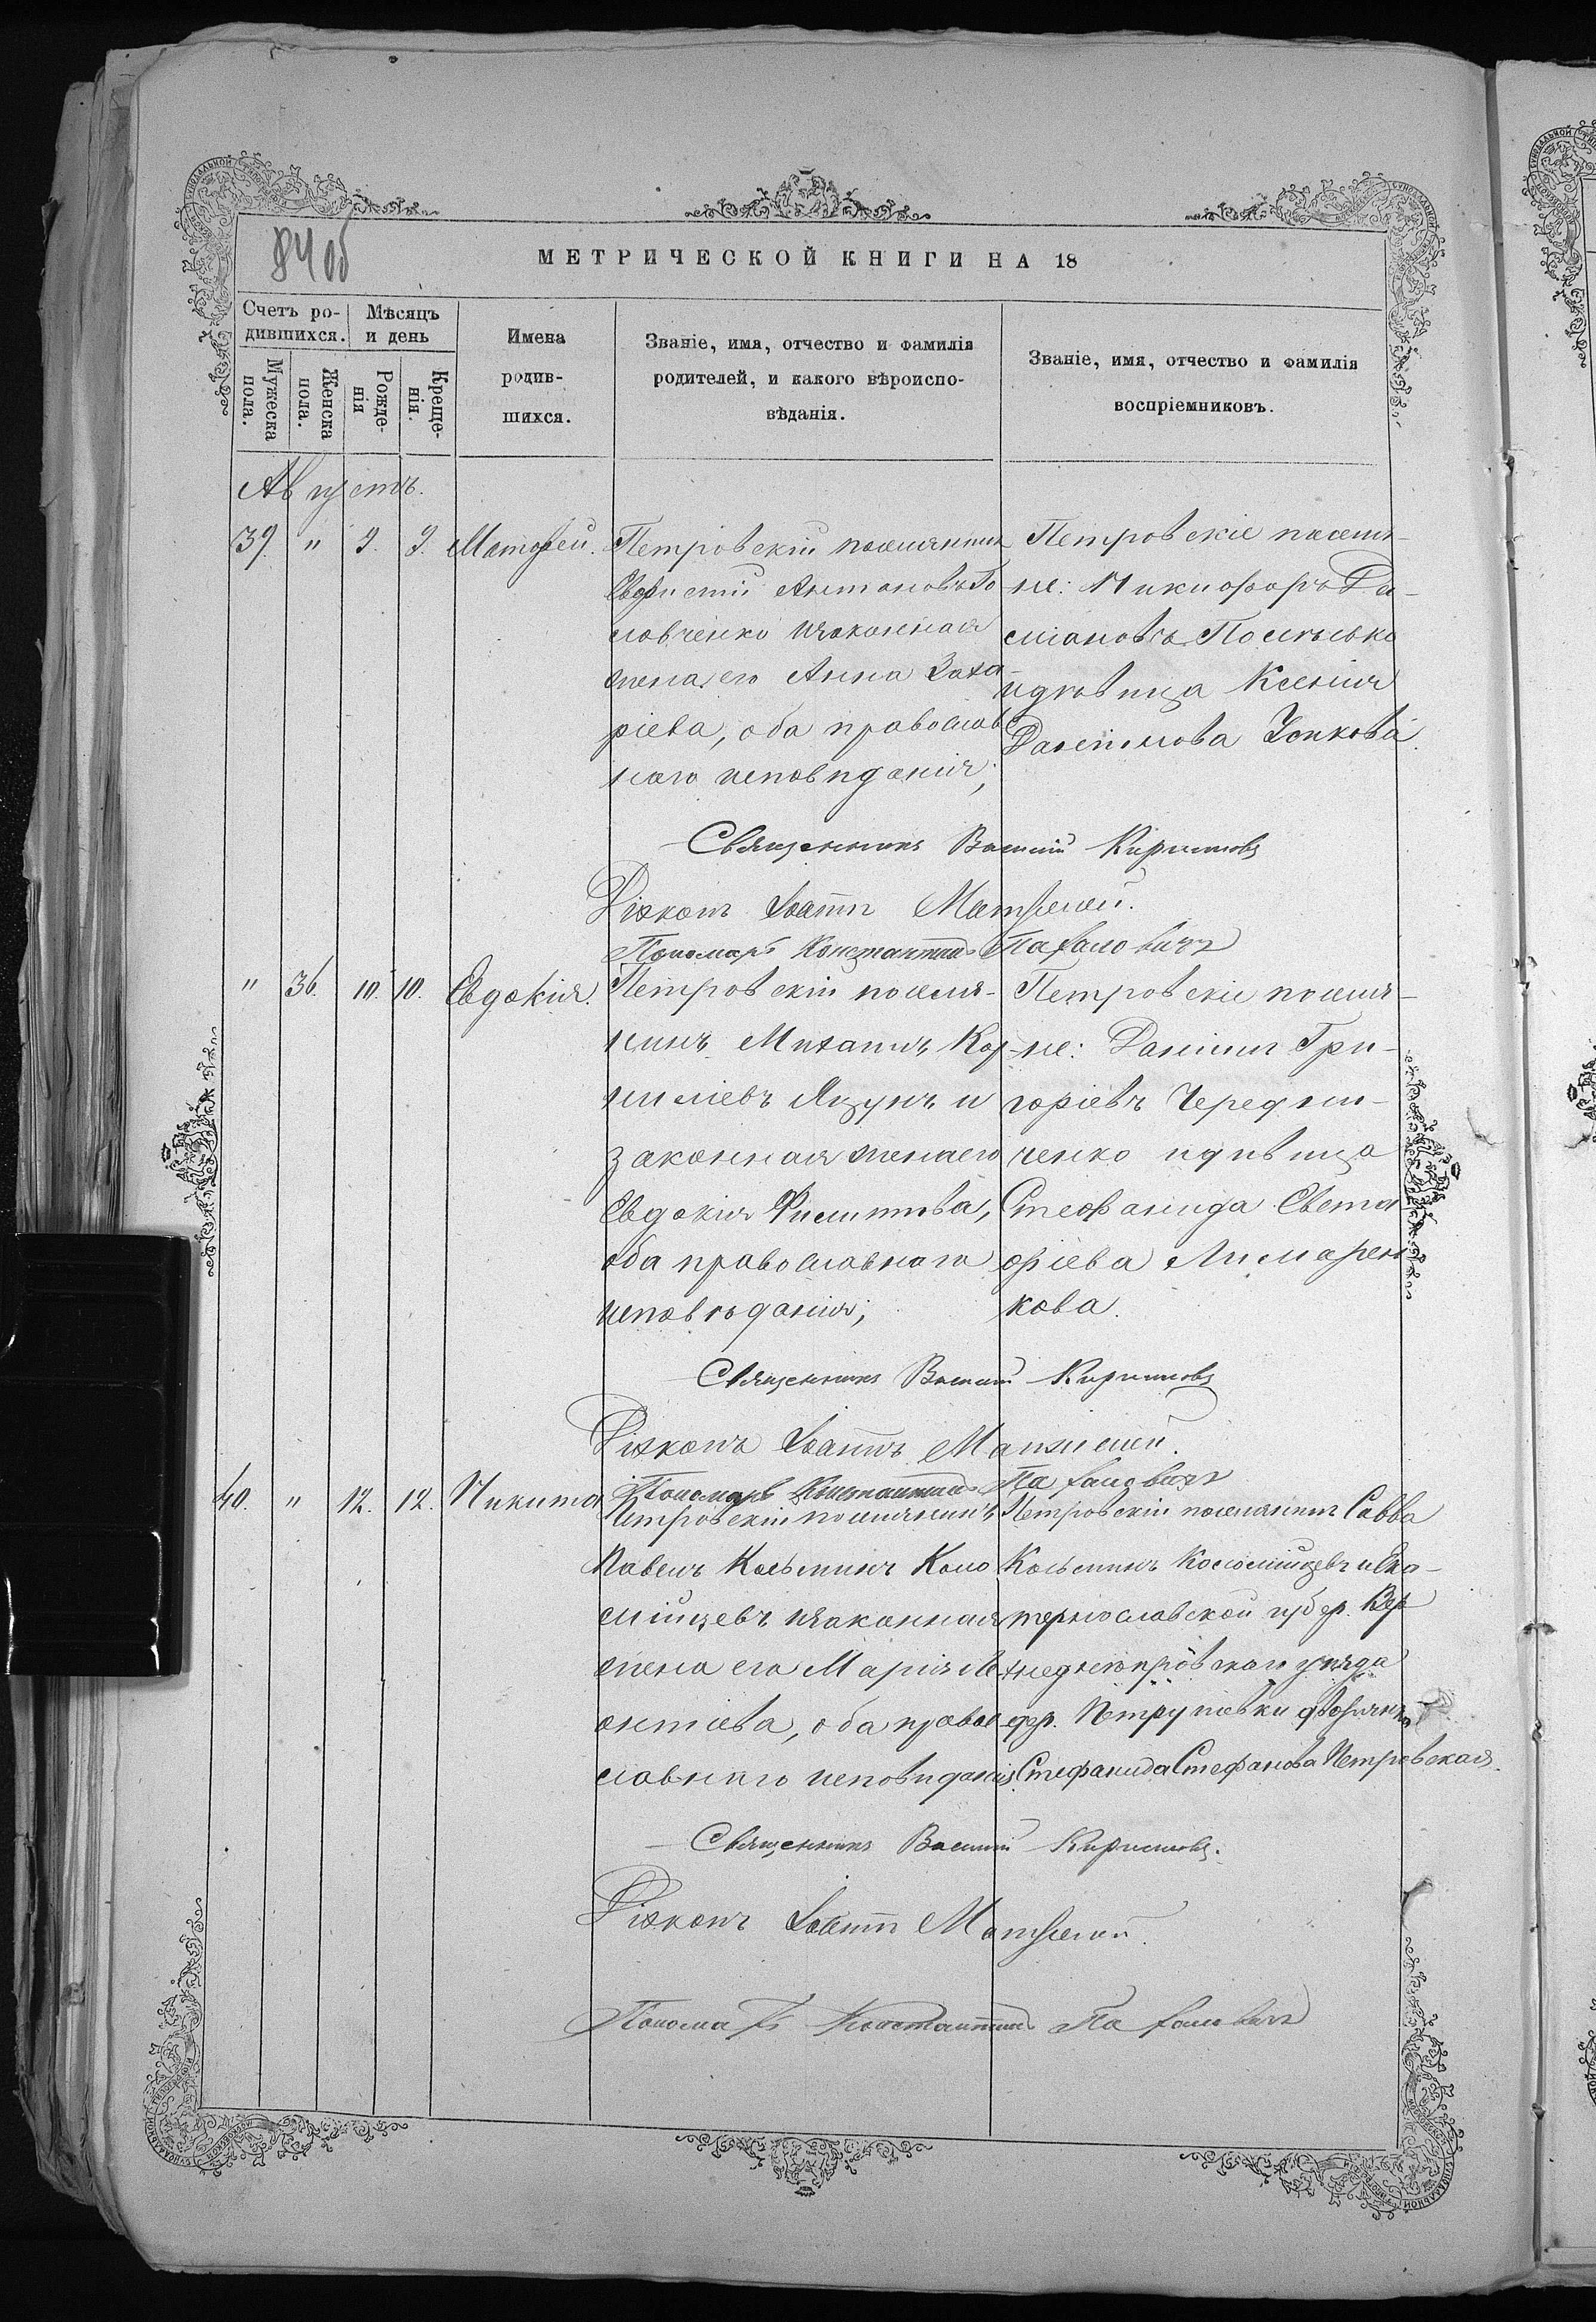 84 об
МЕТРИЧЕСКОЙ КНИГИ НА 18
Счетъ родившихся.
Мужеска пола.
Женска пола.
Мѣсяцъ и день
Рожденія
Крещенія.
Имена родившихся.
Званіе, имя, отчество и фамилія родителей, и какого вѣроисповѣданія.
Званіе, имя, отчество и фамилія воспріемниковъ.
Августъ.
39. " 9. 9. Матфей.
Петровскій поселянинъ
Евфистій Антоновъ Го
ловченко и законная
жена его Анна Заха-
ріева, оба православ
наго исповѣданія;
Петровскіе поселя-
не: Никифоръ Да-
міановъ
и дѣвица Ксенія
Даніилова
Священникъ Василій Кирилловъ
Діаконъ Іоаннъ
Пономарь Константинъ
" 36. 10. 10. Евдокія.
Петровскій поселя-
нинъ Михаилъ Кор-
ниліевъ Яцунъ и
законная жена его
Евдокія Филиппова,
оба православнаго
исповѣданія;
Петровскіе поселя-
не: Даніилъ Гри-
горіевъ Чередни-
ченко и дѣвица
Стефанида Евста
фіева Лимарен
кова.
Священникъ Василій Кирилловъ
Діаконъ Іоаннъ
Пономарь Константинъ
40. " 12. 12. Никита
Петровскій поселянинъ
Павелъ Козьминъ Коло
мійцевъ и законная
жена его Марія Ле
онтіева, оба право
славнаго исповѣданія
Петровскій поселянинъ Савва
Козьминъ Коломійцевъ и Ека-
теринославской губер. Вер
хнеднѣпровскаго уѣзда
дер. дворянка
Стефанида Стефанова Петровская.
Священникъ Василій Кирилловъ.
Діаконъ Іоаннъ
Пономарь Константинъ